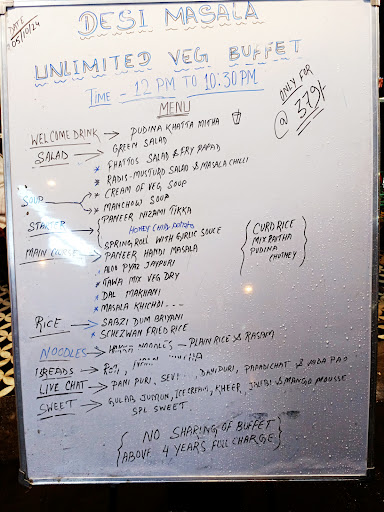 DATE
05/10/24
DESI MASALA
UNLIMITED VEG BUFFET
TIME - 12 PM TO 10:30 PM
ONLY FOR
@ 379/-
MENU
WELCOME DRINK → PUDINA KHATTA MITHA
SALAD → GREEN SALAD
* FHATTOS SALAD & FRY PAPAD
* RADIS-MUSTURD SALAD & MASALA CHILLI
SOUP → * CREAM OF VEG SOUP
* MANCHOW SOUP
STARTER → PANEER NIZAMI TIKKA
HONEY CHILLI POTATO
SPRING ROLL WITH GARLIC SOUCE
MAIN COURSE → * PANEER HANDI MASALA
* ALOO PYAZ JAYPURI
* TAWA MIX VEG DRY
* DAL MAKHANI
* MASALA KHICHDI
CURD RICE
MIX PARTHA
PUDINA
CHUTNEY
RICE → * SABZI DUM BRIYANI
* SCHEZWAN FRIED RICE
NOODLES → NOODLES - PLAIN RICE & RASAM
BREADS →
LIVE CHAT → PANI PURI, SEV, DAHIPURI, PAPADICHAT & VADA PAO
SWEET → GULAB JUMUN, ICE CREAM, KHEER, JALEBI & MANGO MOUSSE
SPL SWEET
NO SHARING OF BUFFET
ABOVE 4 YEARS FULL CHARGE